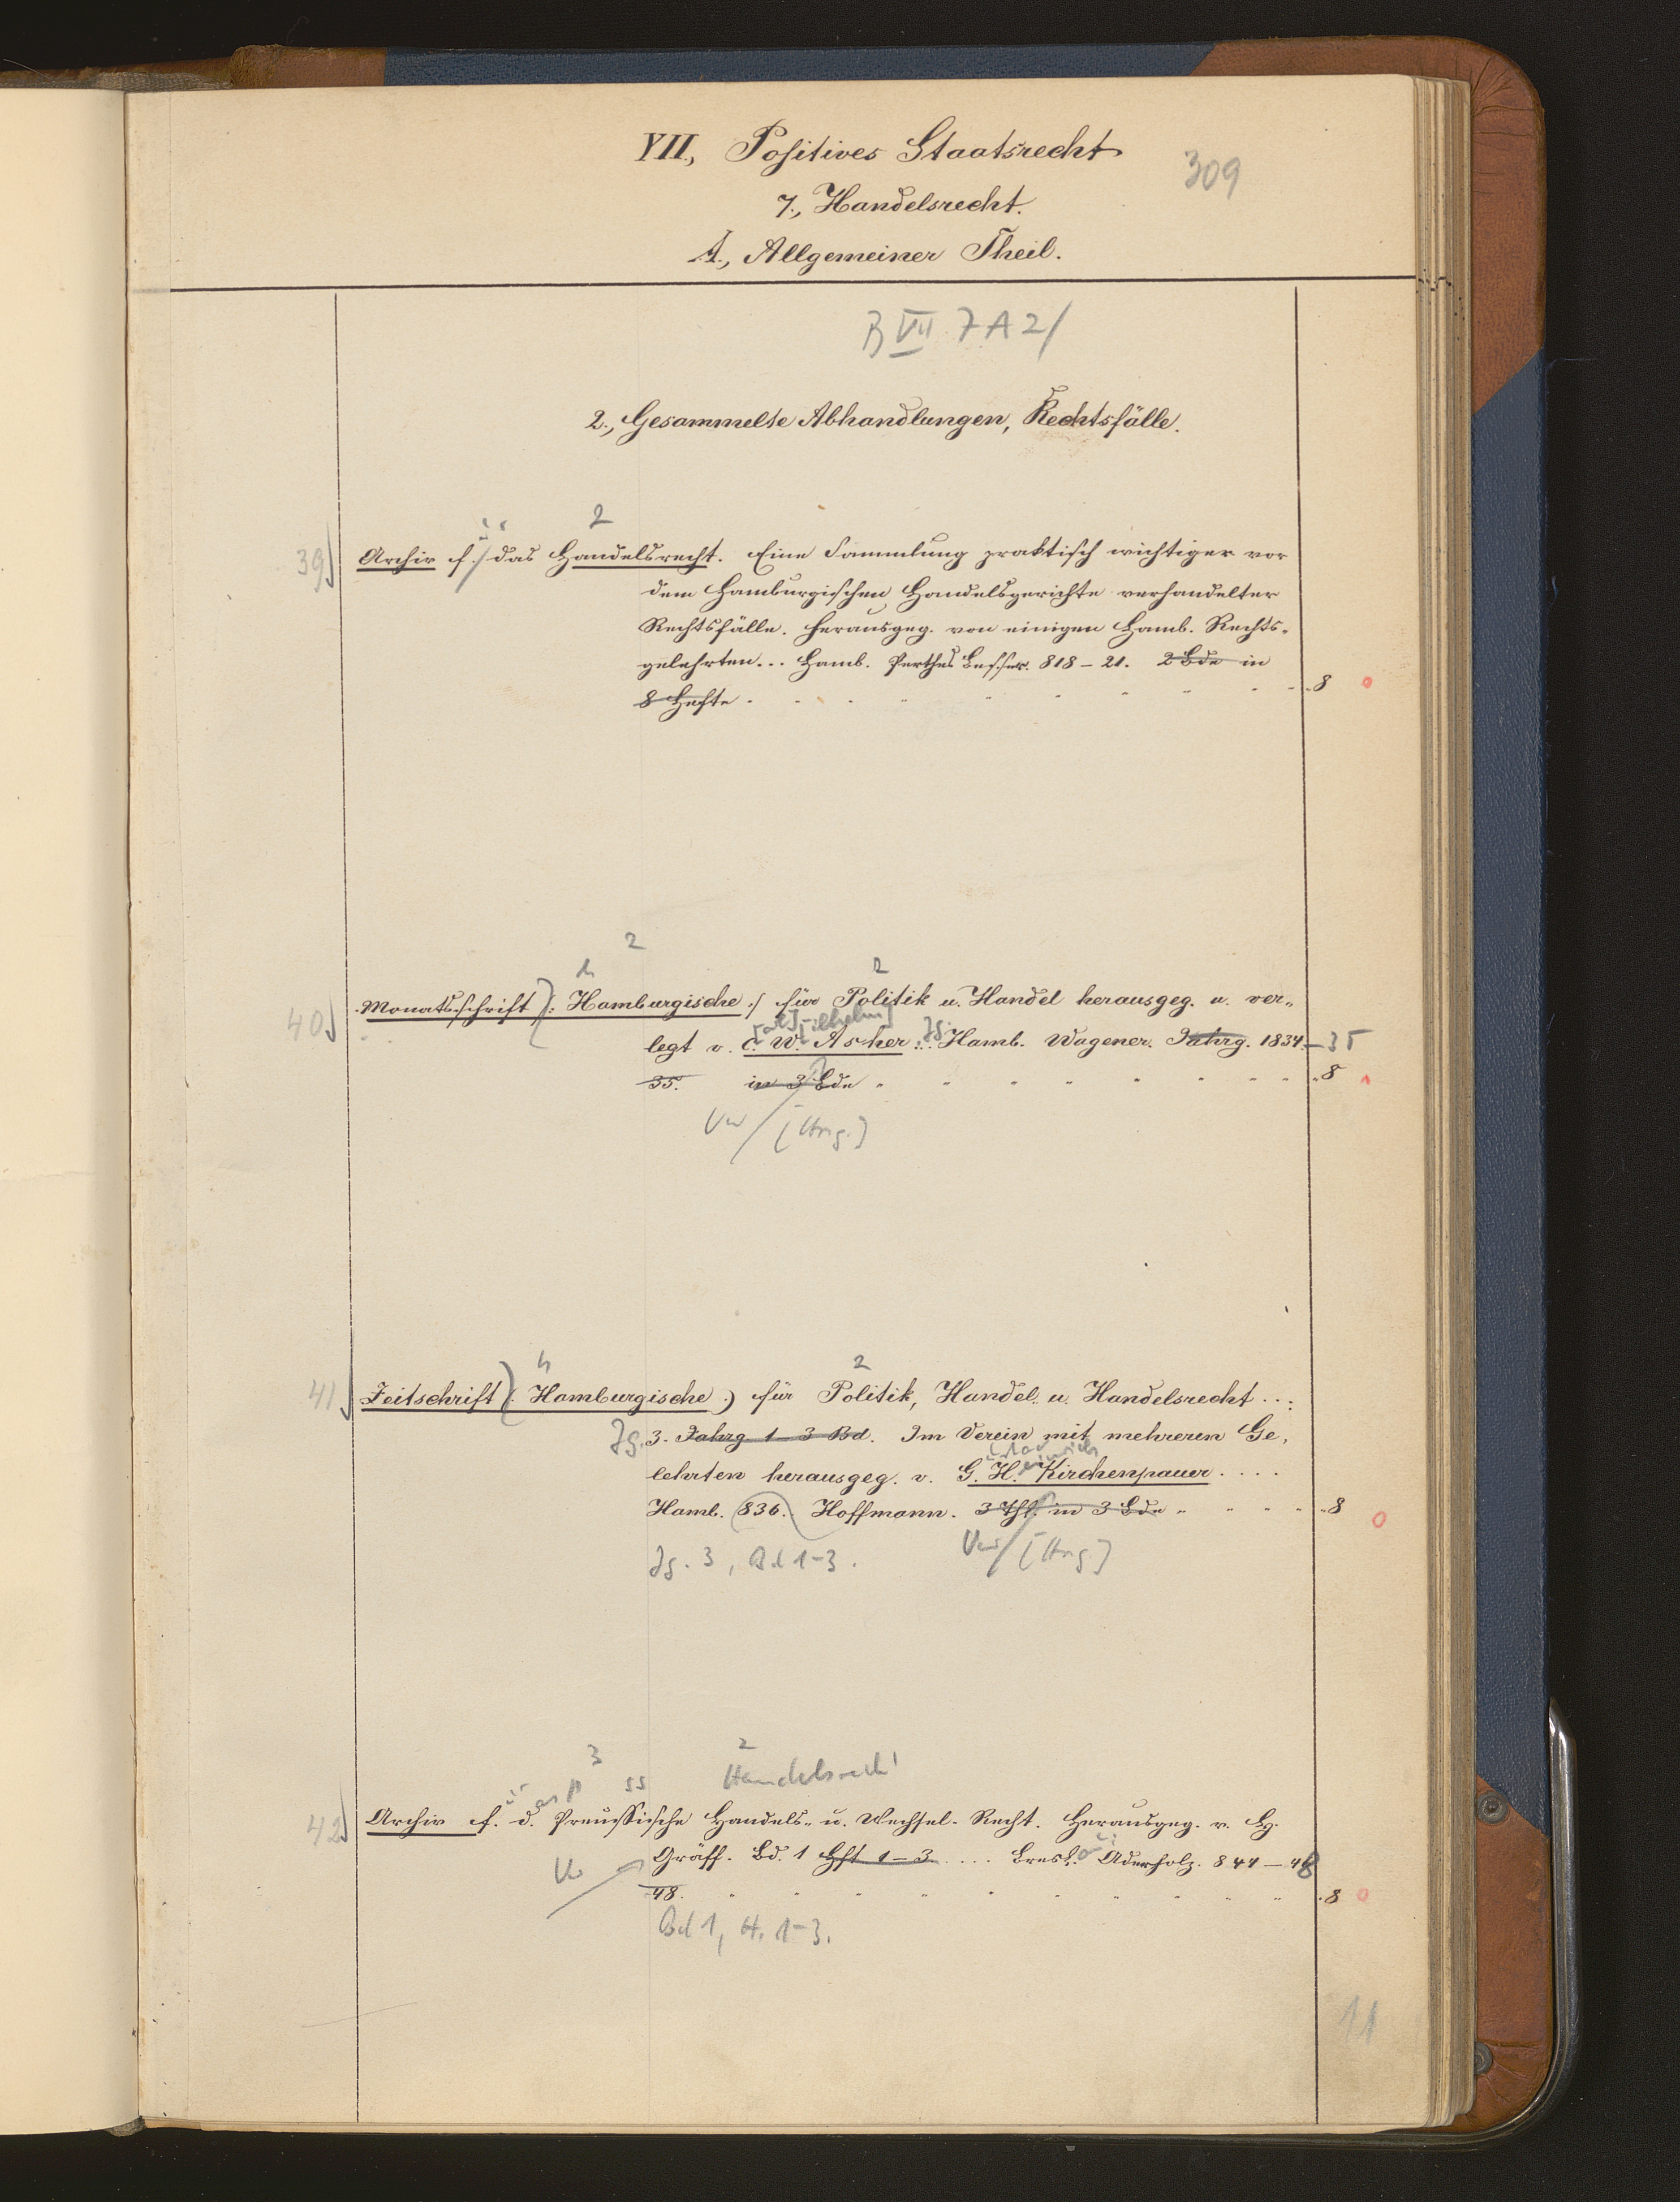 VII., Positives Staatsrecht
309
7., Handelsrecht.
A., Allgemeiner Theil.
B VII 7 A 2/
2., Gesammelte Abhandlungen, Rechtsfälle.
2
39) Archiv f. das Handelsrecht. Eine Sammlung praktisch wichtiger vor
dem Hamburgischen Handelsgerichte verhandelter
Rechtsfälle. Herausgeg. von einigen Hamb. Rechts-
gelehrten... Hamb. Perthes Besser. 818-21. 2 Bde in
8 Hefte . . . . . . . . . 8
2
h 2
40) Monatsschrift (: Hamburgische :) für Politik u. Handel herausgeg. u. ver-
[arl] [ilhelm] Jg.
legt v. C. W. Asher ... Hamb. Wagener. Jahrg. 1834.-35
35. in 3 Bde " " " " " " " 8
Vw [Hrsg.]
h 2
41) Zeitschrift (: Hamburgische :) für Politik, Handel u. Handelsrecht ...
Jg. 3. Jahrg. 1-3 Bd. Im Verein mit mehreren Ge-
einrich
lehrten herausgeg. v. G. H. Kirchenpauer ....
Hamb. 836. Hoffmann. 3 Thl. in 3 Bde " " " " 8
Jg. 3, Bd 1-3. Vw [Hrsg]
3 2
as p ss Handelsrecht
42) Archiv f. d. Preußische Handels- u. Wechsel-Recht. Herausgeg. v. Hg.
Vw Gräff. Bd. 1 Hft 1-3 .... Bresl. Aderholz. 844-48
48. " " " " " " " " 8
Bd 1, H. 1-3.
11